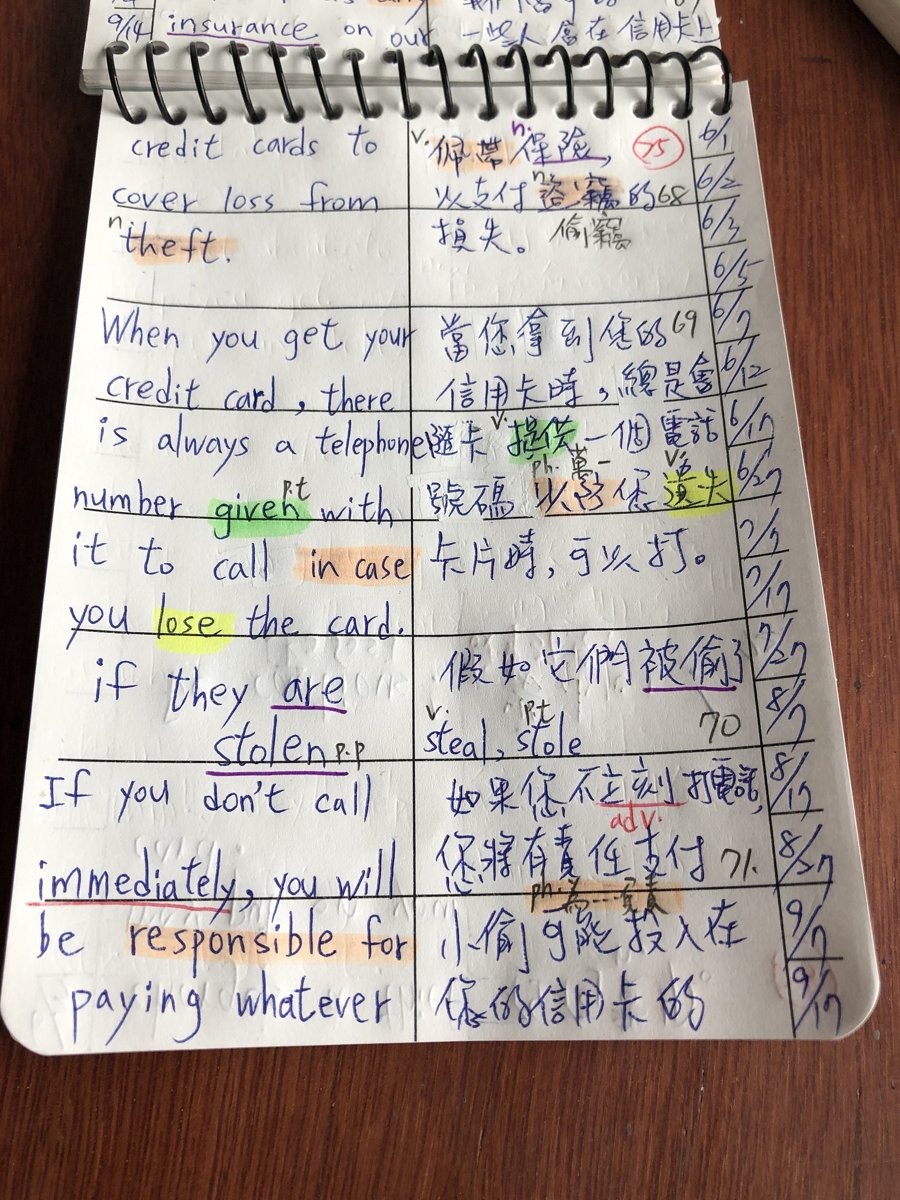 9/14 insurance on our 一些人會在信用卡上
credit cards to v. 佩帶 n. 保險, 75 6/1
cover loss from 以支付 n. 盜竊 的 68 6/2
n. theft. 損失。 偷竊 6/3
6/5
When you get your 當您拿到您的 69 6/7
credit card, there 信用卡時,總是會 6/12
is always a telephone 匯卡 v. 提供 一個電話 6/17
ph. 萬一 v.
number given p.t with 號碼 以防 您 遺失 6/27
it to call in case 卡片時,可以打。 7/7
you lose the card. 7/17
if they are 假如它們被偷了 7/27
v. p.t
stolen p.p steal, stole 70 8/7
If you don't call 如果您不立刻打電話, 8/17
adv.
immediately, you will 您將有責任支付 71. 8/27
ph. 為...負責
be responsible for 小偷可能投入在 9/7
paying whatever 您的信用卡的 9/17